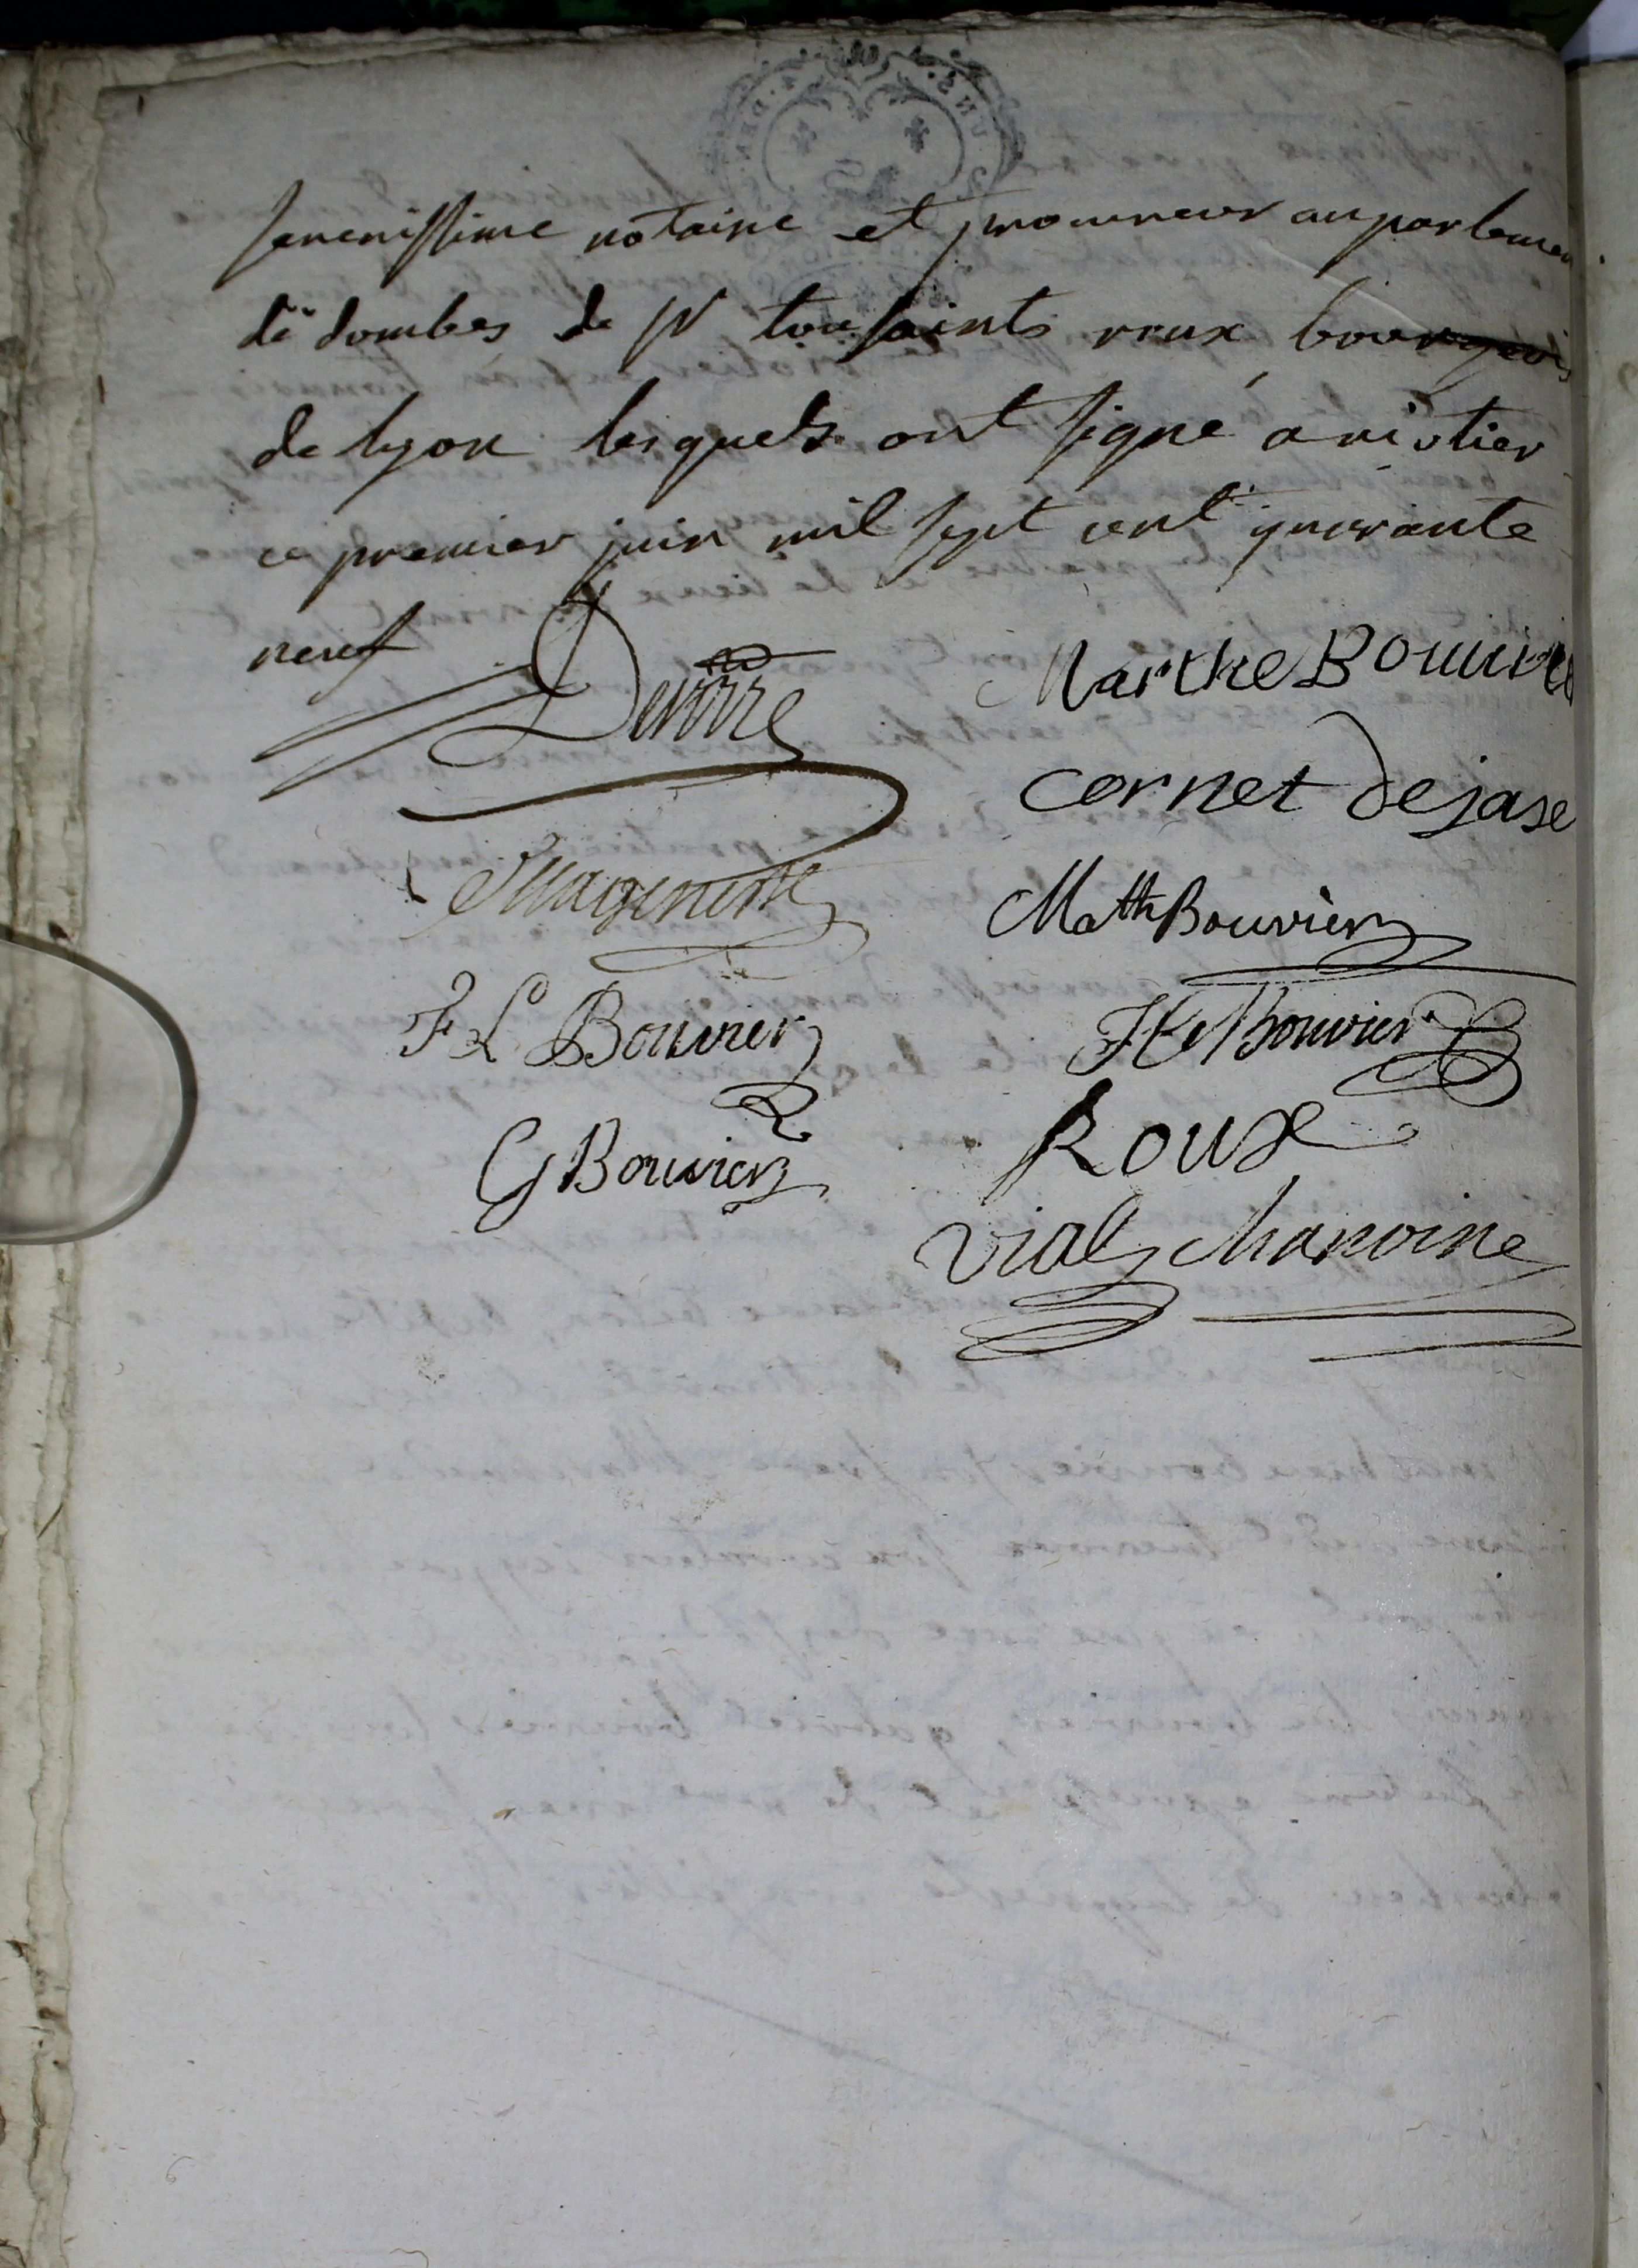 serenissime notaire et procureur au parlemen
de dombes de sr tousaints roux bourgeois
de lyon lesquels ont signé a riotier
ce premier juin mil sept cent quarante
neuf
Marthe Bouvier
cornet dejase
Math Bouvier
F L Bouvier
Bouvier
G Bouvier
Roux
vial chanoine